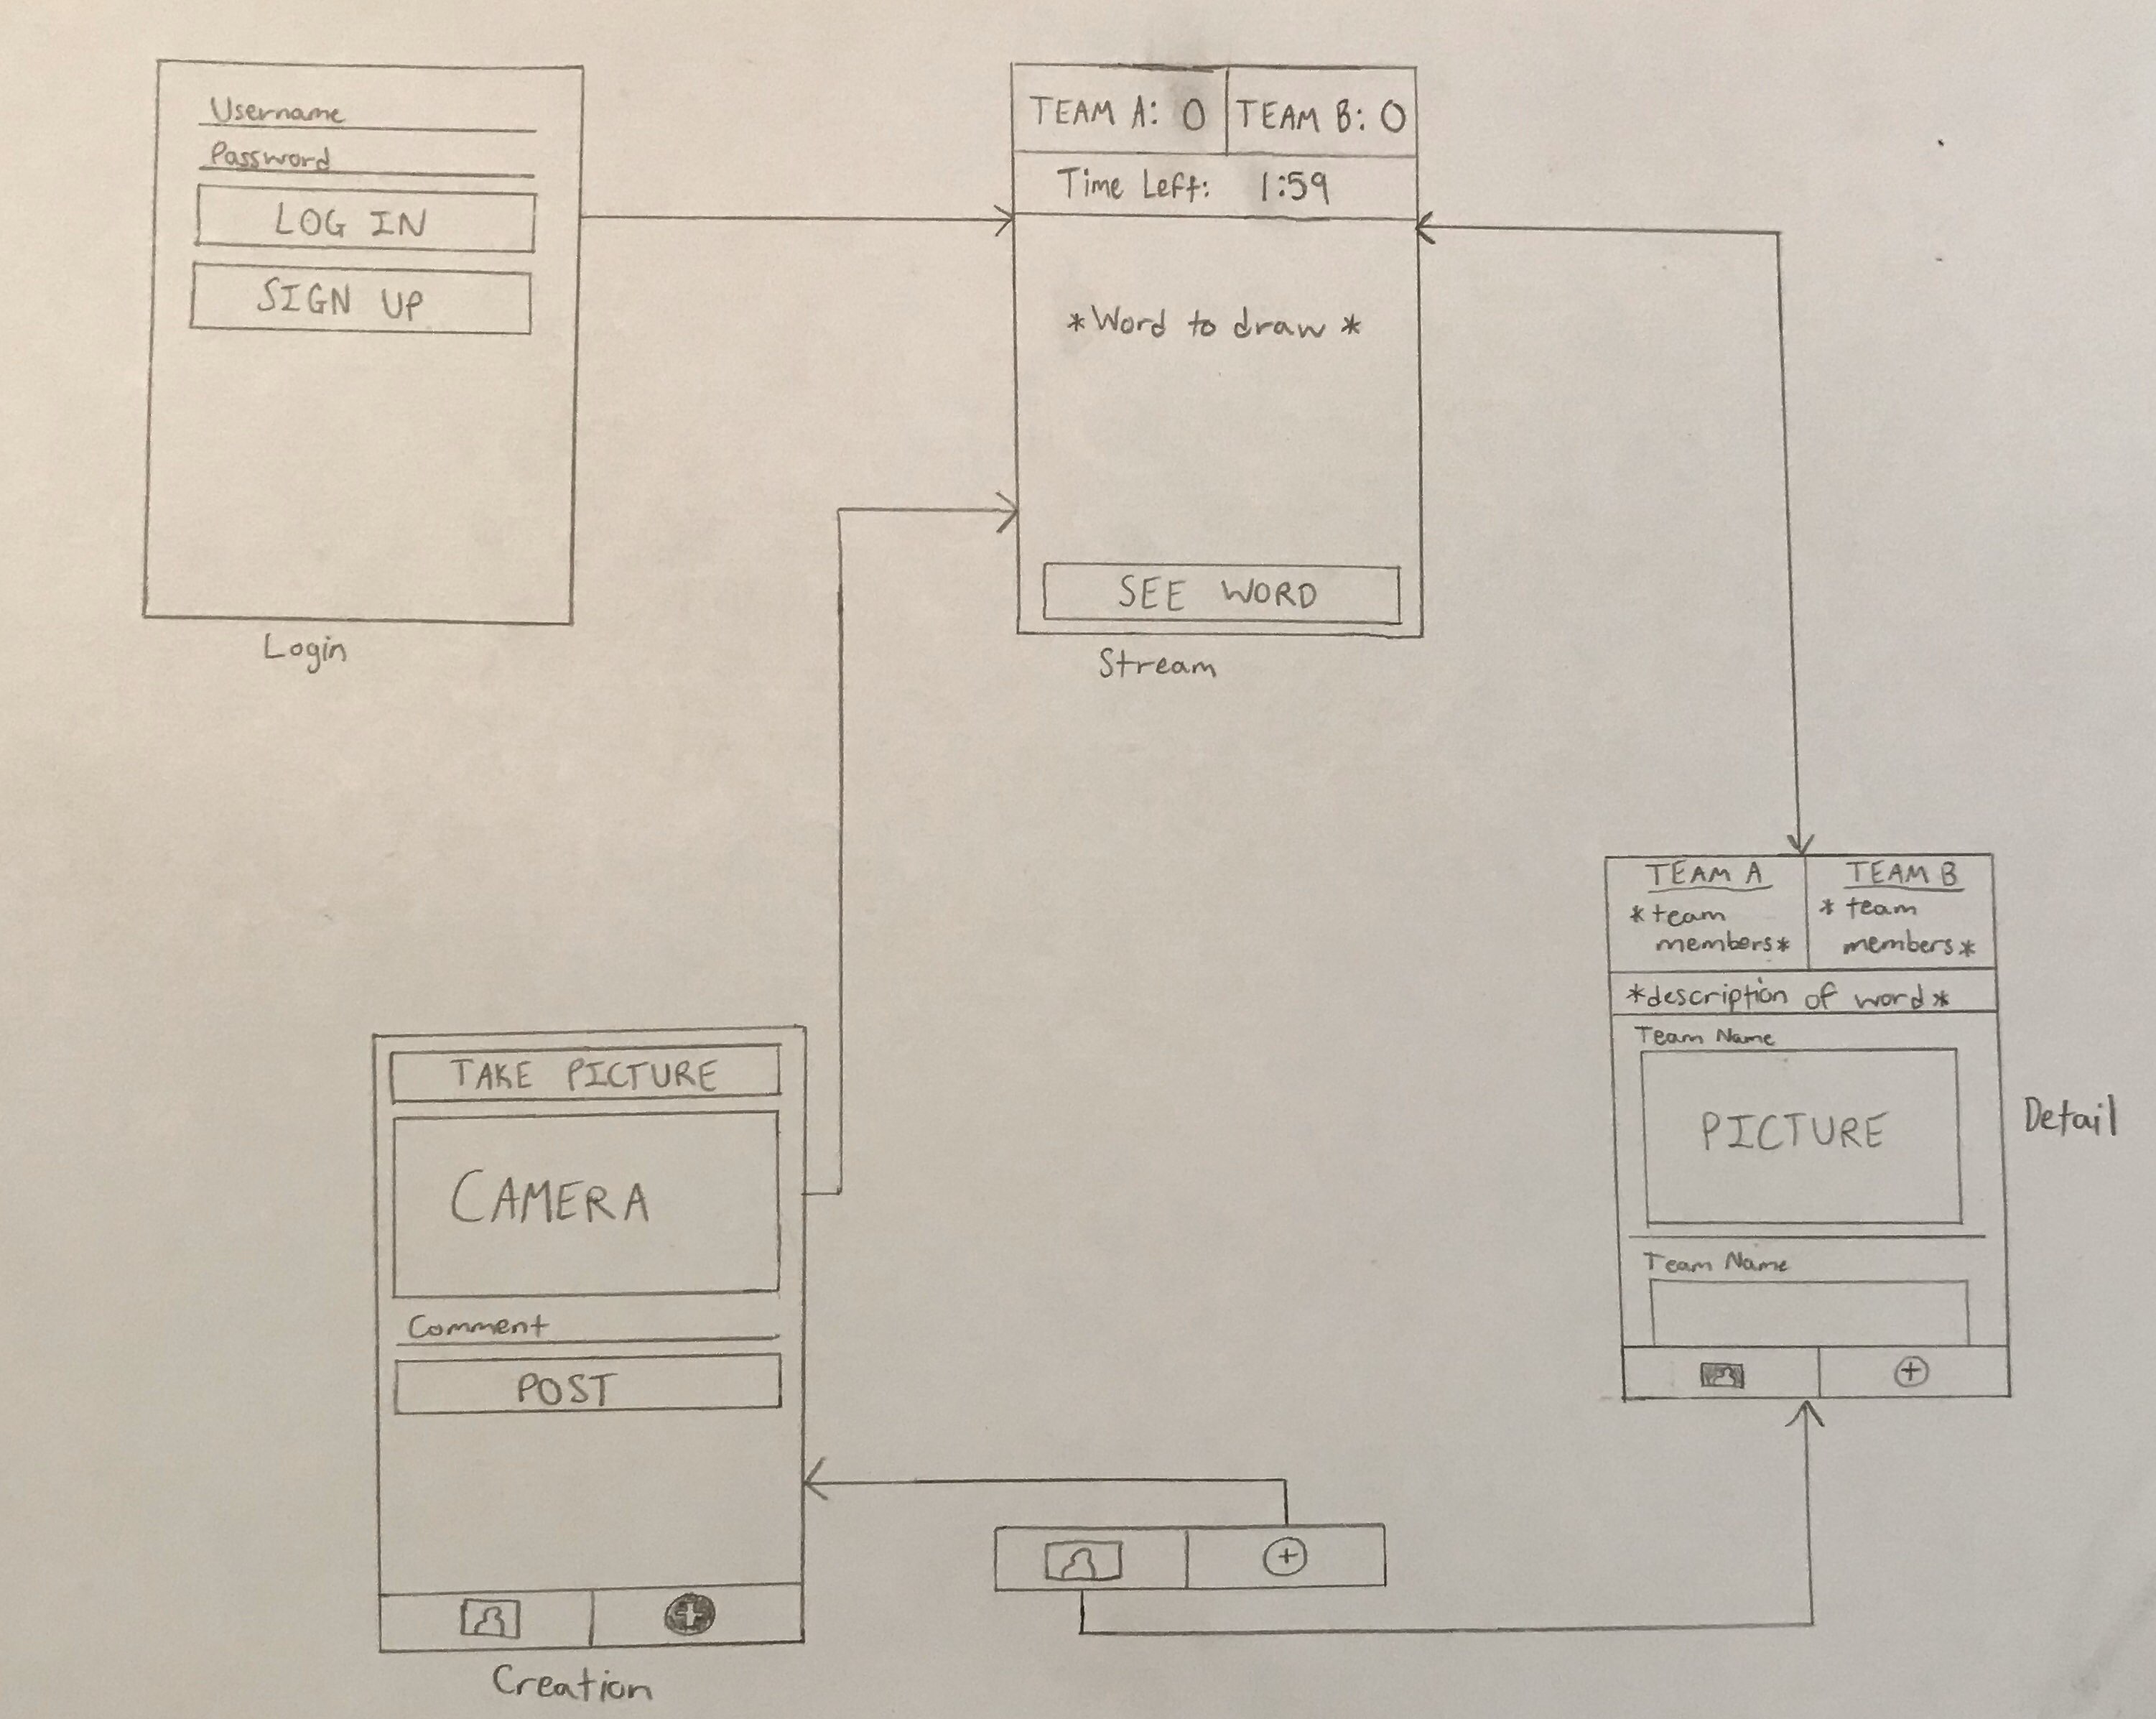 Username
Password
LOG IN
SIGN UP
Login
TEAM A: 0
TEAM B: 0
Time Left: 1:59
*Word to draw*
SEE WORD
Stream
TEAM A
*team
members*
TEAM B
*team
members*
*description of word*
Team Name
PICTURE
Team Name
Detail
TAKE PICTURE
CAMERA
Comment
POST
Creation